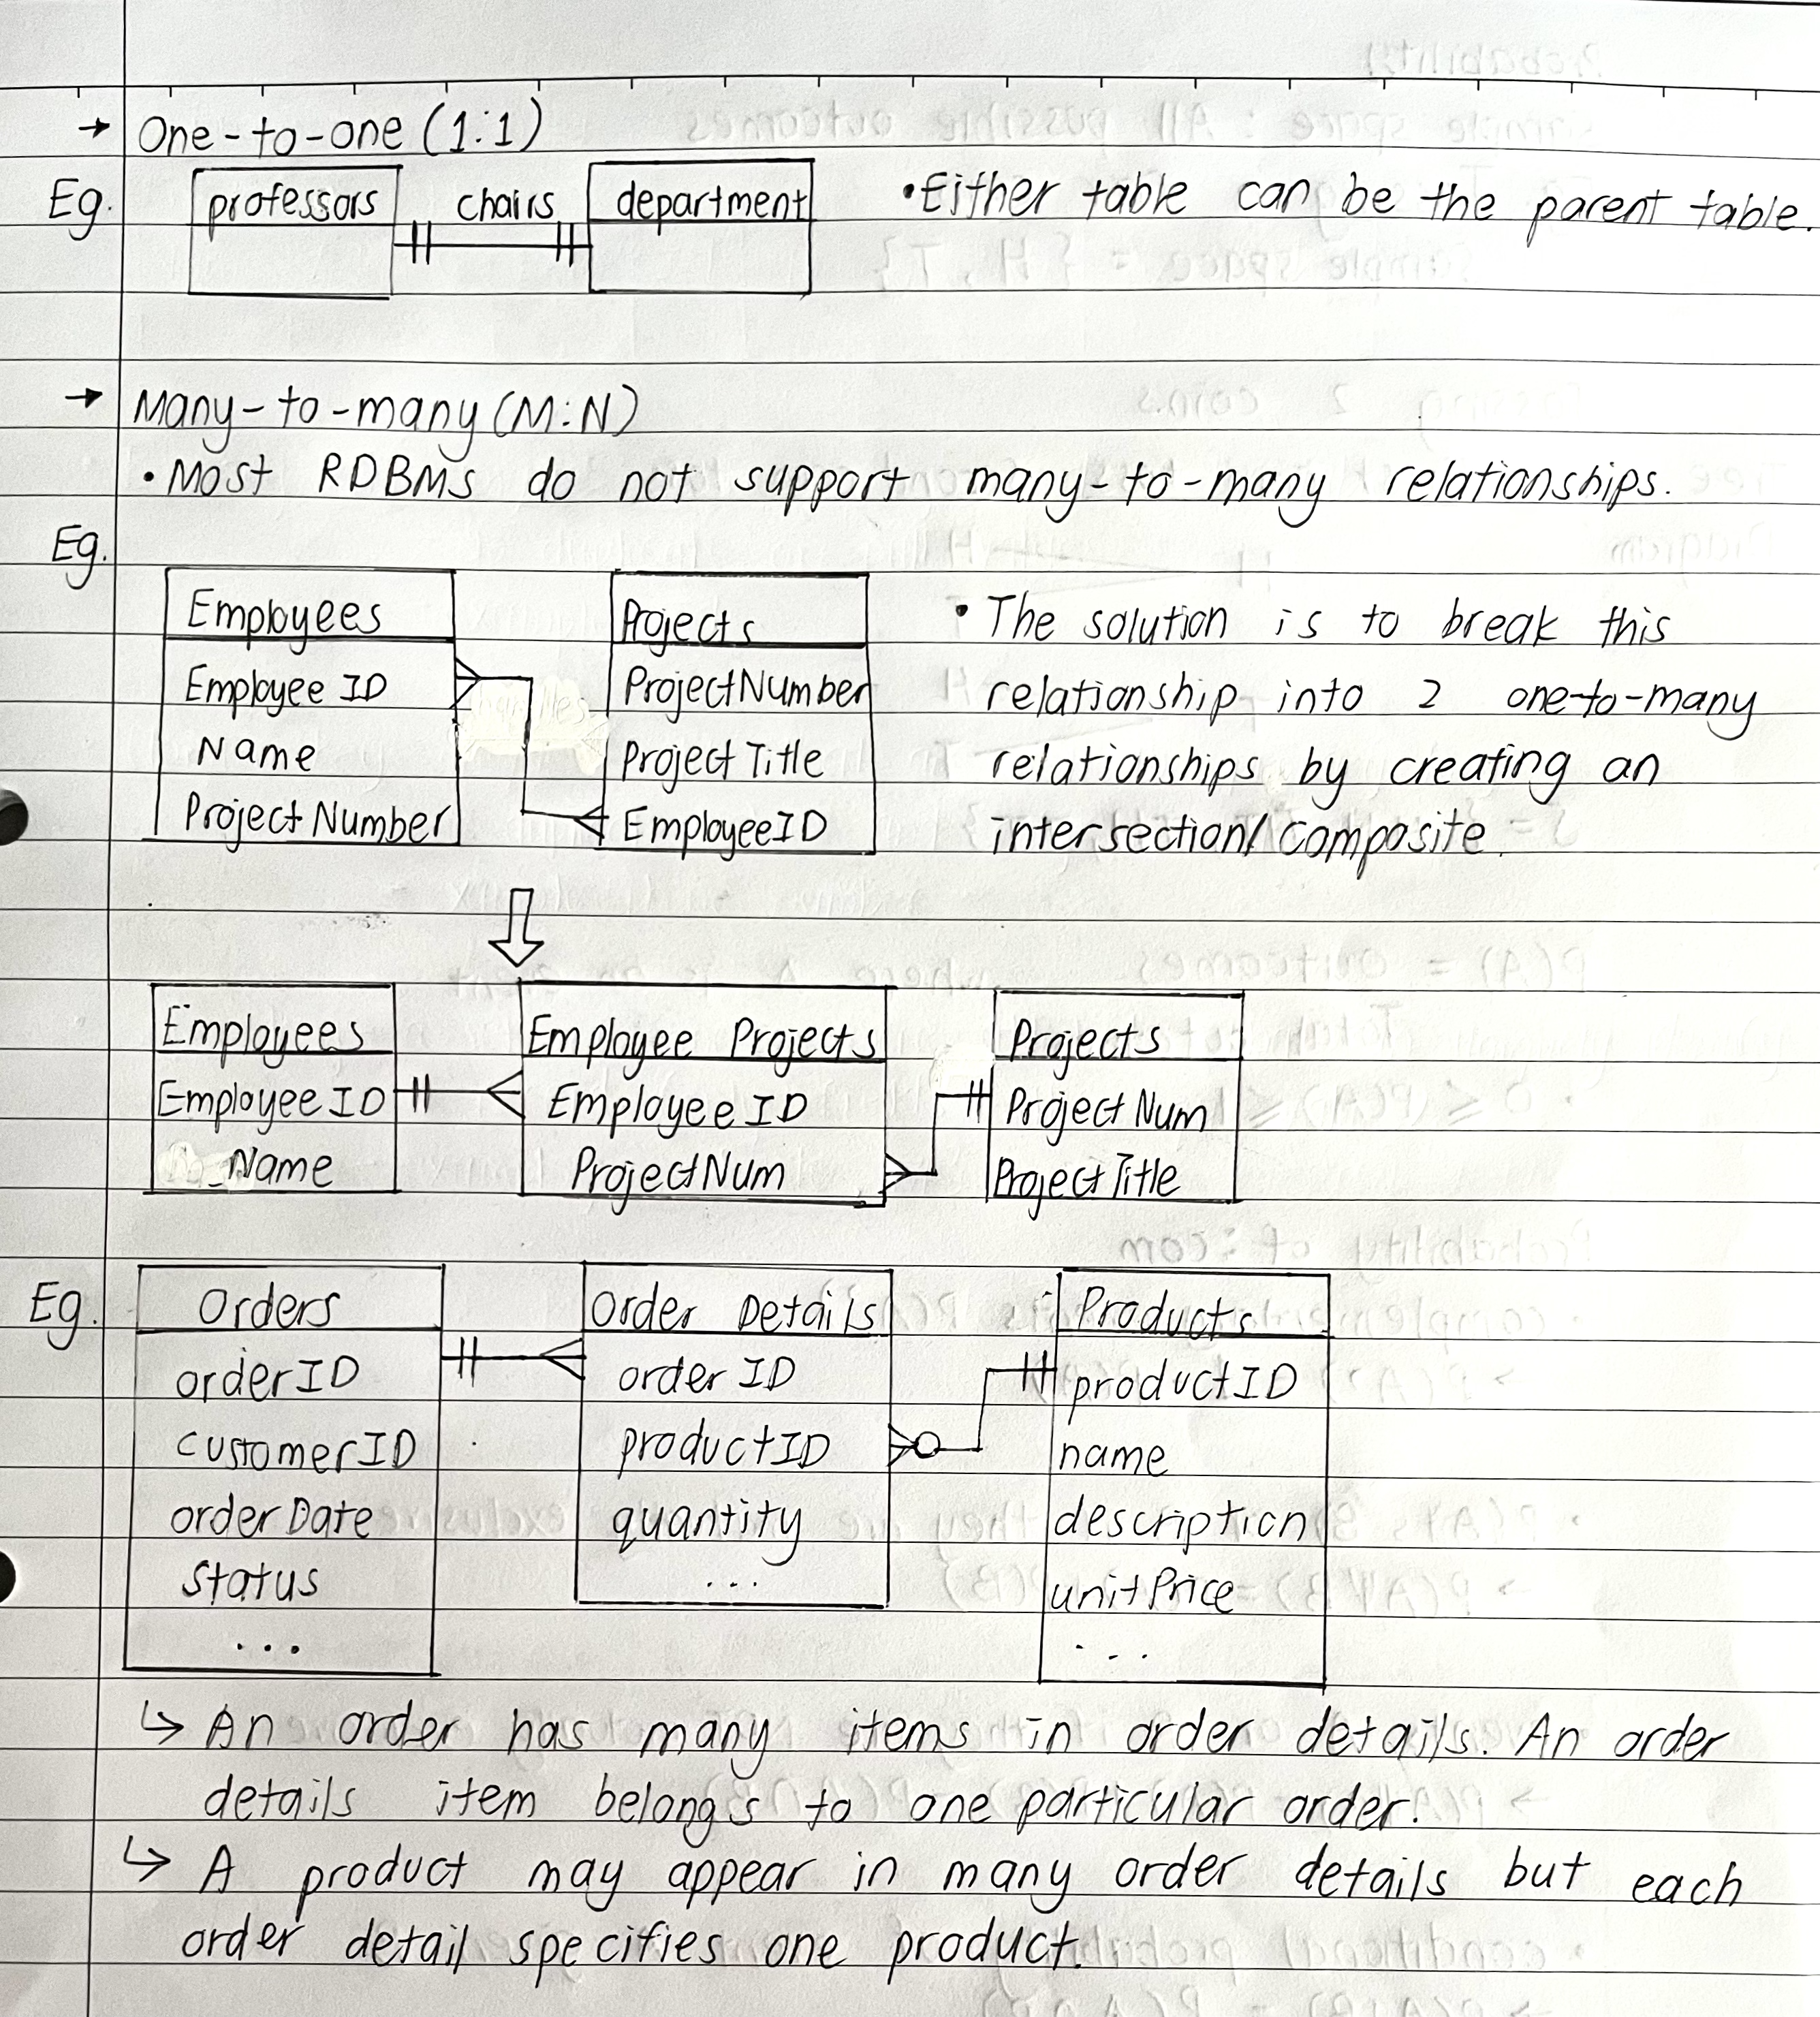 → One-to-one (1:1)
Eg. professors chairs department • Either table can be the parent table.
→ Many-to-many (M:N)
• Most RDBMS do not support many-to-many relationships.
Eg.
Employees
Employee ID
Name
ProjectNumber
Projects
ProjectNumber
Project Title
EmployeeID
• The solution is to break this
relationship into 2 one-to-many
relationships by creating an
intersection/composite.
Employees
EmployeeID
Name
Employee Projects
Employee ID
ProjectNum
Projects
ProjectNum
ProjectTitle
Eg.
Orders
orderID
customerID
orderDate
status
...
Order Details
orderID
productID
quantity
...
Products
productID
name
description
unitPrice
...
↳ An order has many items in order details. An order
details item belongs to one particular order.
↳ A product may appear in many order details but each
order detail specifies one product.